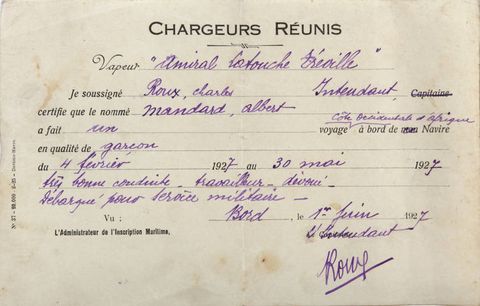 CHARGEURS RÉUNIS
Vapeur "Amiral Latouche Tréville"
Je soussigné Roux, charles Intendant, Capitaine
certifie que le nommé Mandard, albert
a fait un voyage côte occidentale d'afrique à bord de mon Navire
en qualité de garçon
du 4 février 1927 au 30 mai 1927
très bonne conduite - travailleur - dévoué -
Débarqué pour service militaire -
Vu : Bord, le 1er Juin 1927
L'Administrateur de l'Inscription Maritime, L'Intendant
Roux